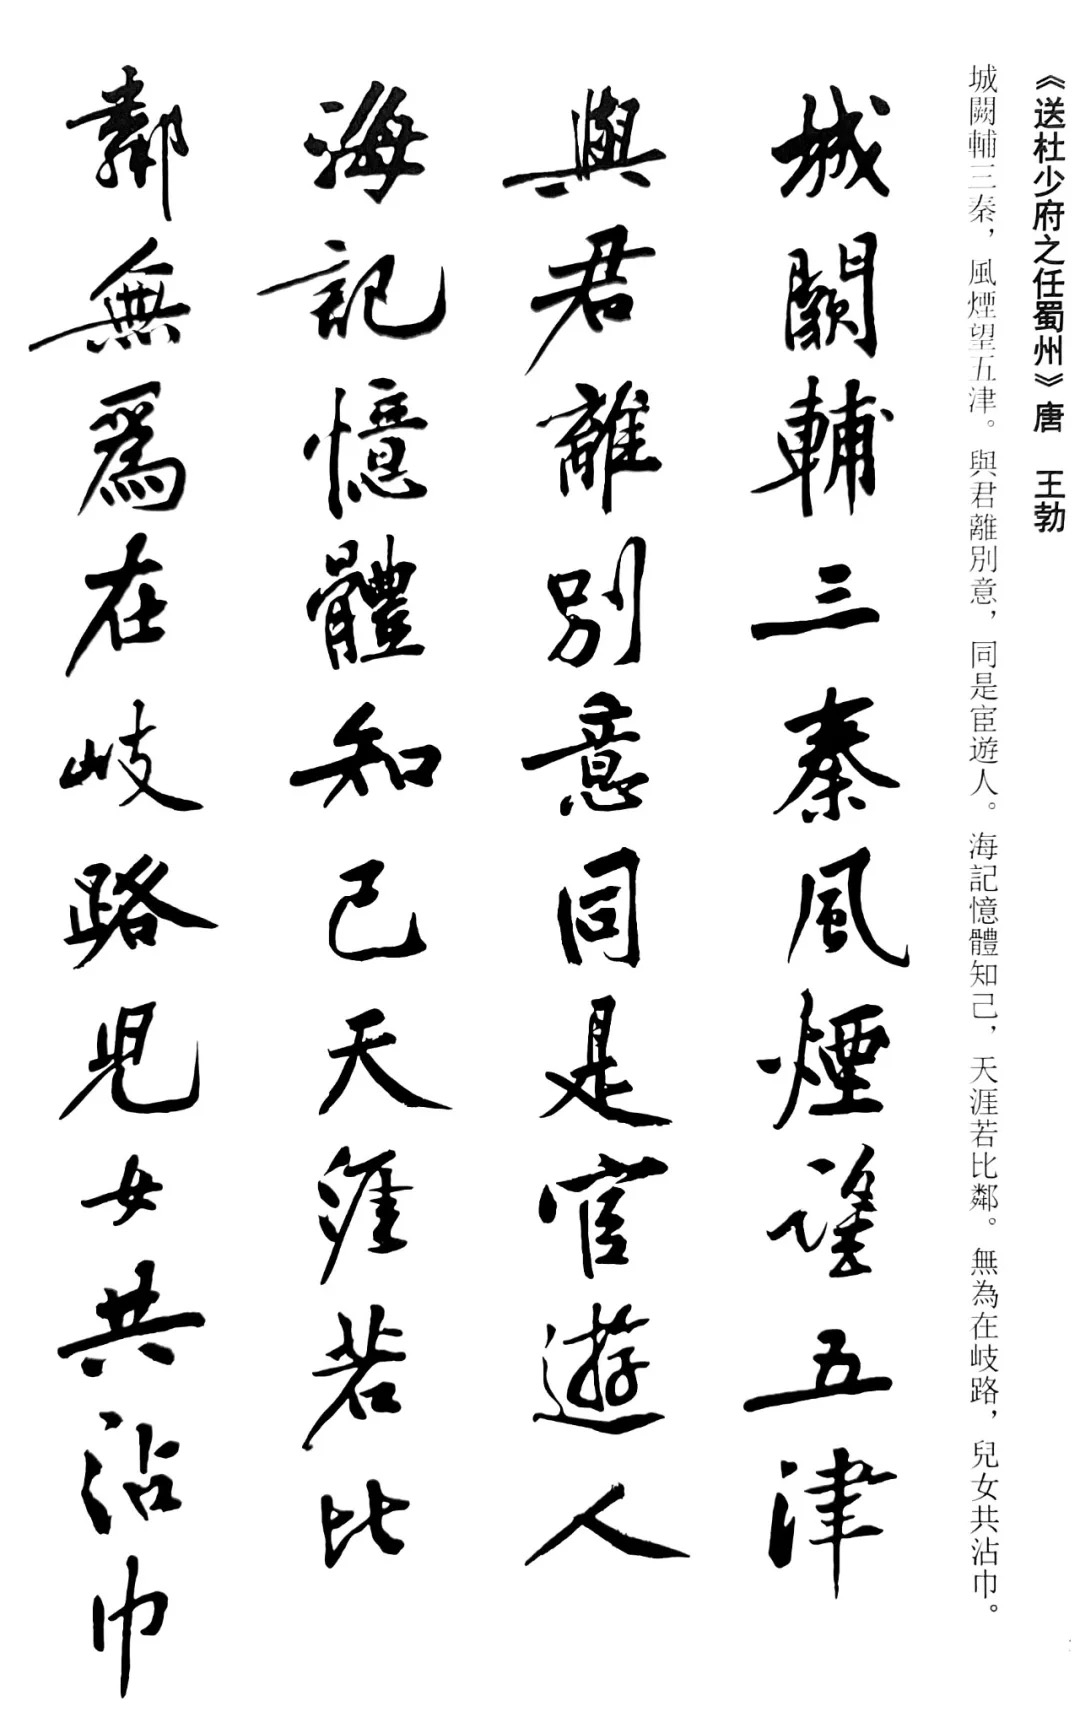 《送杜少府之任蜀州》唐 王勃
城闕輔三秦，風煙望五津。與君離別意，同是宦遊人。海記憶體知己，天涯若比鄰。無為在岐路，兒女共沾巾。
城闕輔三秦風煙望五津
與君離別意同是官遊人
海記憶體知己天涯若比
鄰無爲在岐路兒女共沾巾